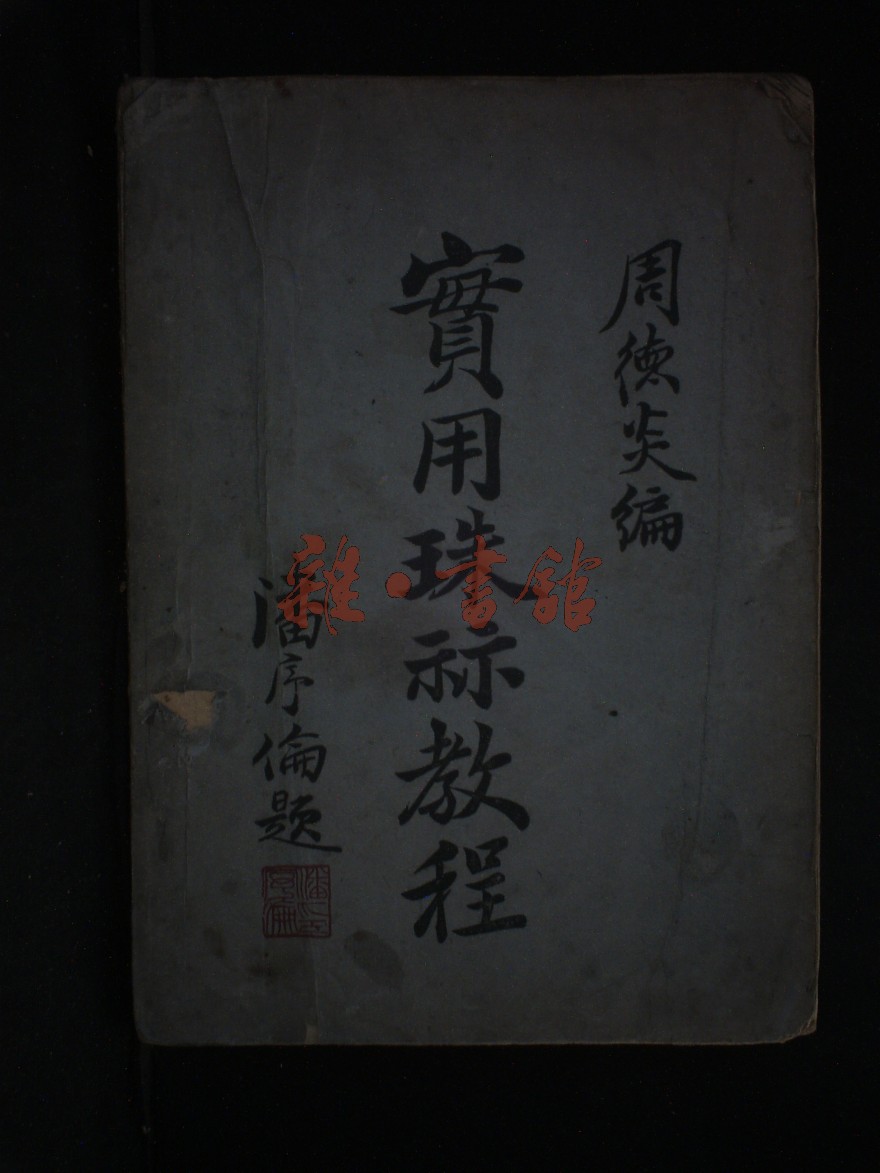 周德炎編
實用珠祘教程
潘序倫題
雜·書館